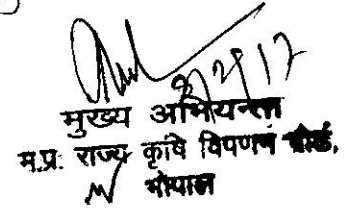 मुख्य अभियन्ता
म.प्र. राज्य कृषि विपणन बोर्ड,
भोपाल